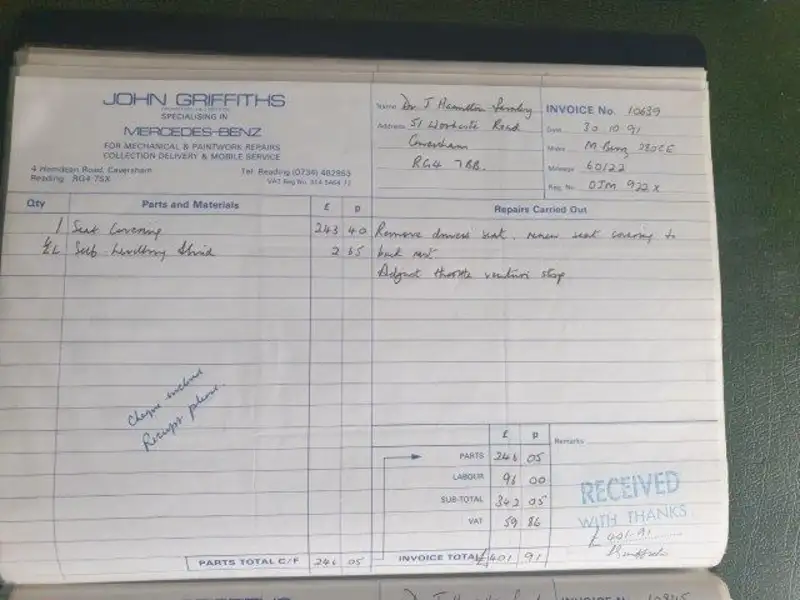 JOHN GRIFFITHS
SPECIALISING IN
MERCEDES-BENZ
FOR MECHANICAL & PAINTWORK REPAIRS
COLLECTION DELIVERY & MOBILE SERVICE
4 Hemdean Road, Caversham
Reading RG4 7SX
Tel: Reading (0734) 482955
VAT Reg No.
Name Dr J Hamilton
Address 51 Road
Caversham
RG4 7BB.
INVOICE No. 10639
Date 30.10.91
Make M Benz 280CE
Mileage 60122
Reg. No. OJM 922X
Qty Parts and Materials £ p
Repairs Carried Out
1 Seat Covering 243 40
½L Self Levelling Fluid 2 65
Remove drivers seat. renew seat covering to
back rest.
Adjust throttle venturi stop
Cheque enclosed
Receipt please.
£ p
Remarks
PARTS 246 05
LABOUR 96 00
SUB-TOTAL 342 05
VAT 59 86
PARTS TOTAL C/F 246 05
INVOICE TOTAL £401 91
RECEIVED
WITH THANKS
£401-91
INVOICE N